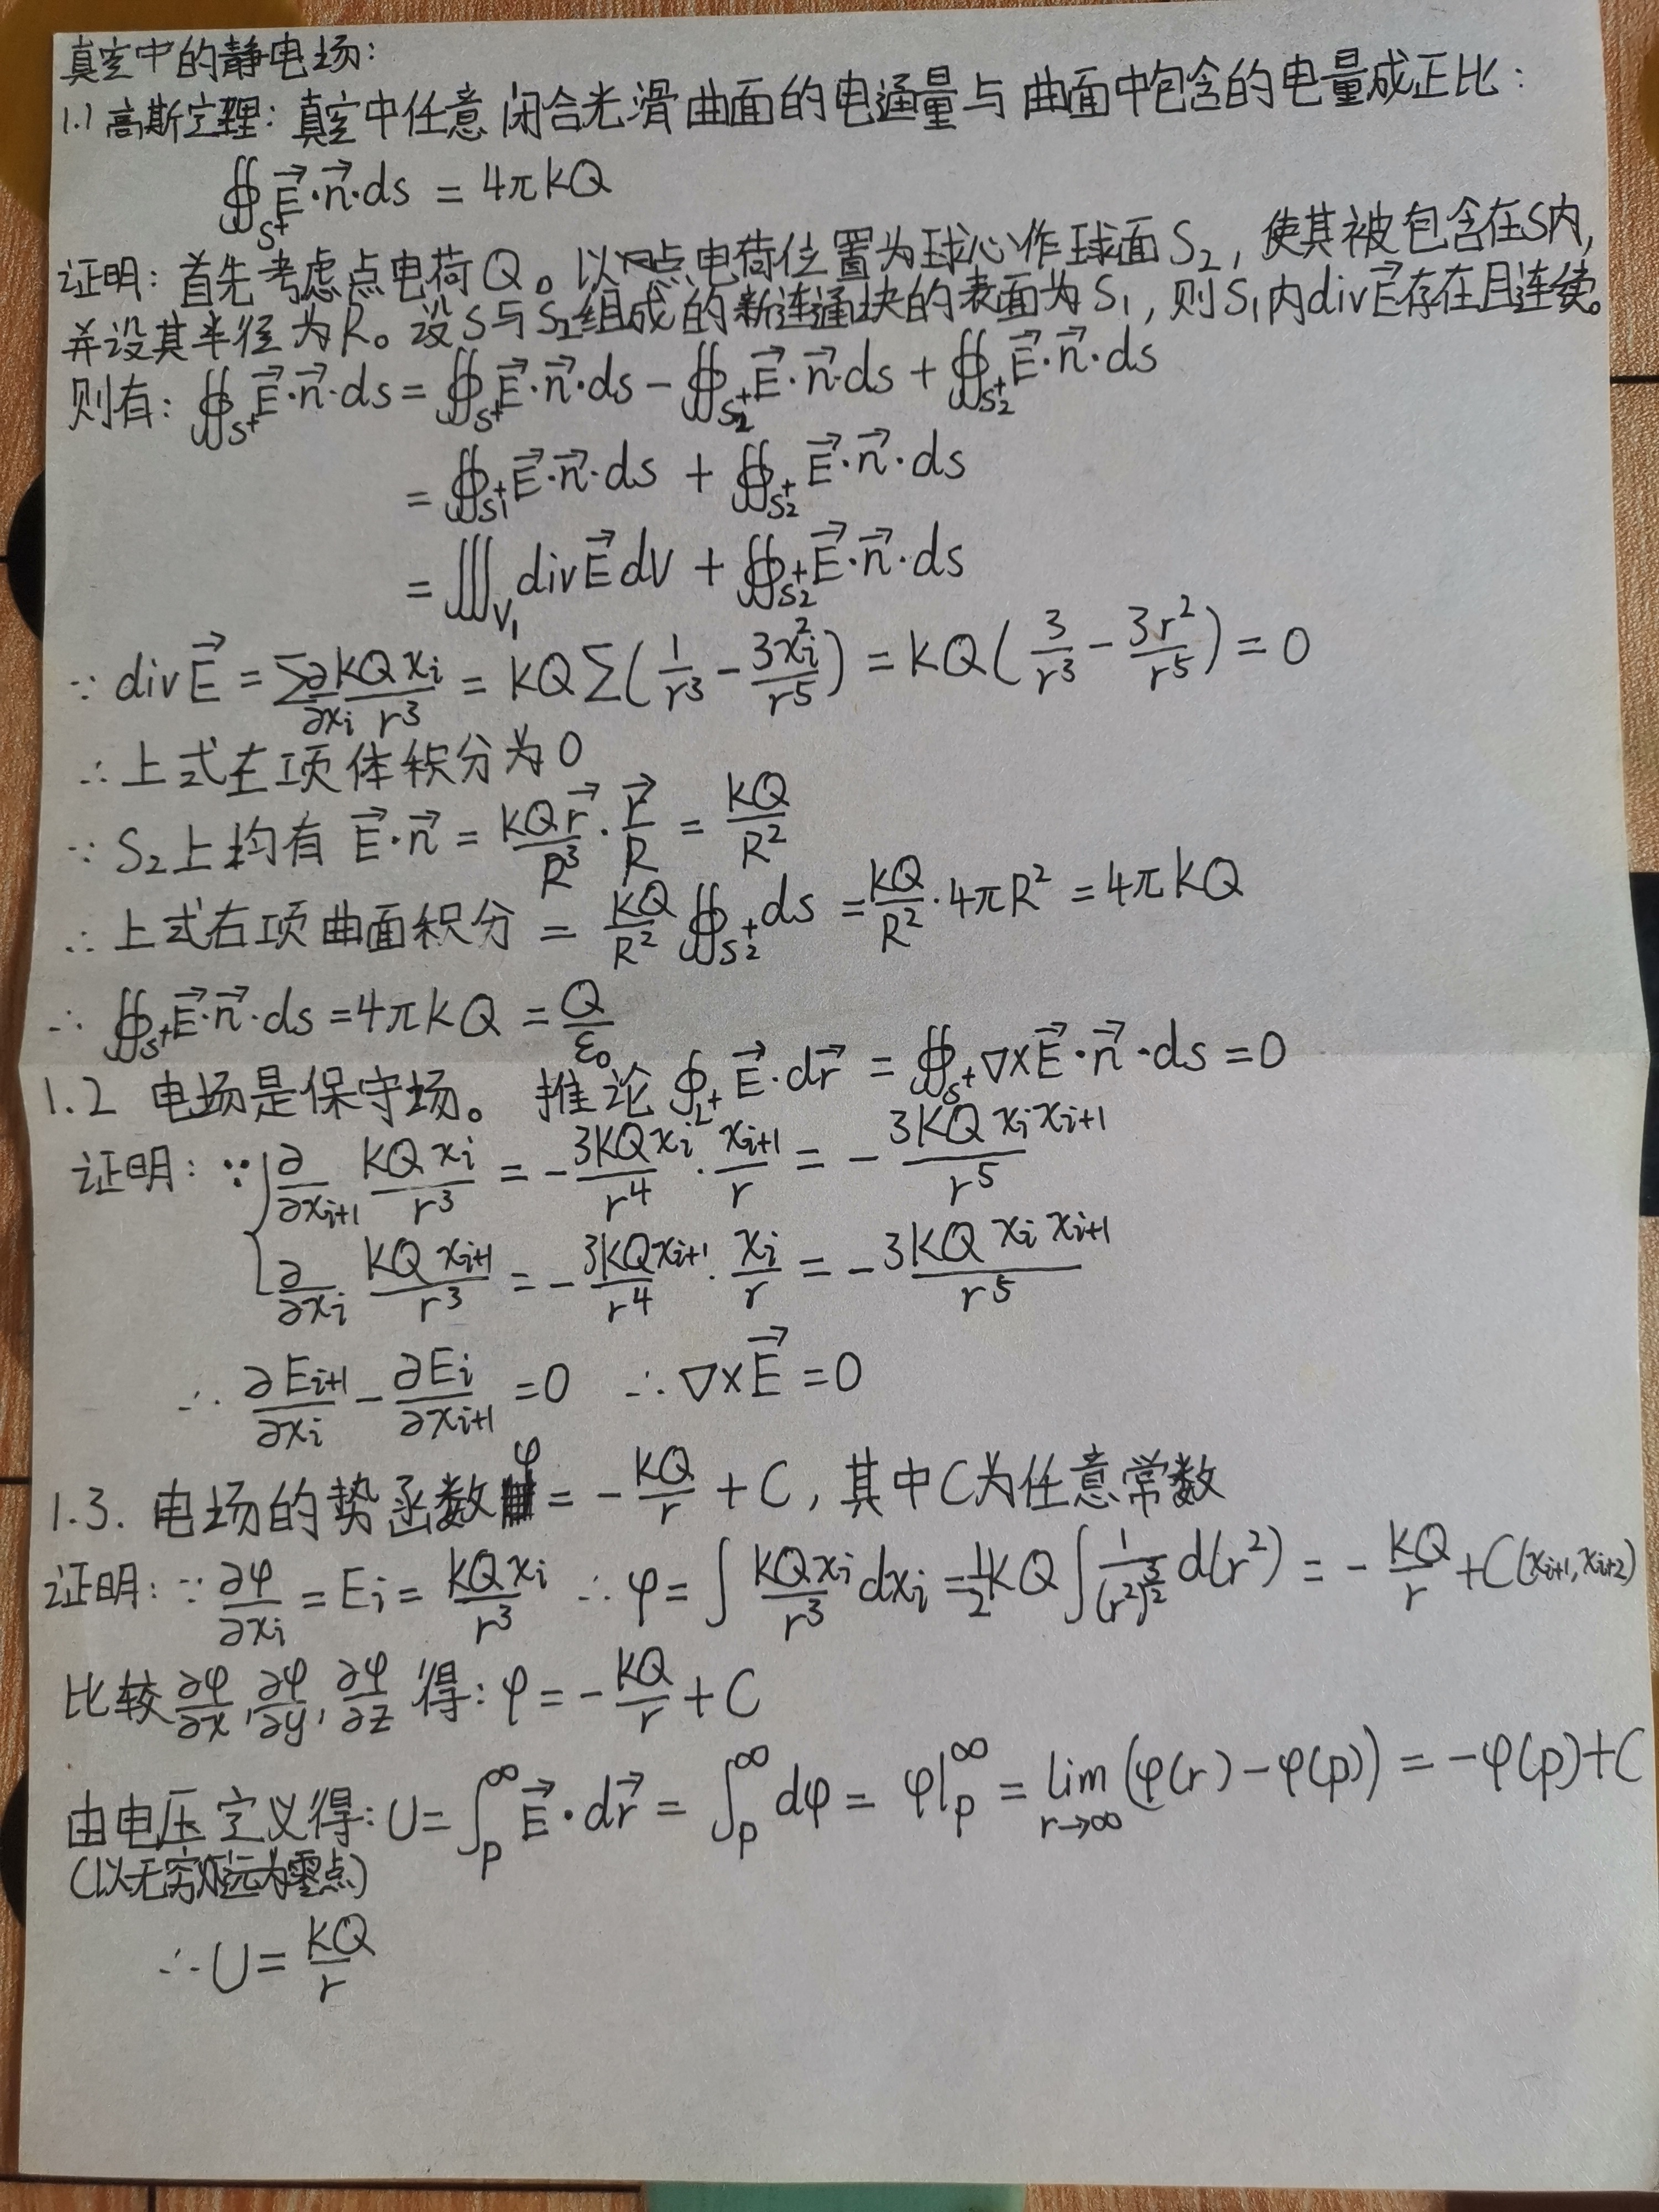 真空中的静电场:
1.1 高斯定理: 真空中任意闭合光滑曲面的电通量与曲面中包含的电量成正比:
∯_{S⁺} E⃗·n⃗·ds = 4πkQ
证明: 首先考虑点电荷Q。以点电荷位置为球心作球面S₂, 使其被包含在S内,
并设其半径为R。设S与S₂组成的新连通块的表面为S₁, 则S₁内divE⃗存在且连续。
则有: ∯_{S⁺} E⃗·n⃗·ds = ∯_{S⁺} E⃗·n⃗·ds - ∯_{S₂⁺} E⃗·n⃗·ds + ∯_{S₂⁺} E⃗·n⃗·ds
= ∯_{S₁⁺} E⃗·n⃗·ds + ∯_{S₂⁺} E⃗·n⃗·ds
= ∭_{V₁} divE⃗ dV + ∯_{S₂⁺} E⃗·n⃗·ds
∵ divE⃗ = Σ ∂/∂xᵢ kQxᵢ/r³ = kQΣ(1/r³ - 3xᵢ²/r⁵) = kQ(3/r³ - 3r²/r⁵) = 0
∴ 上式左项体积分为0
∵ S₂上均有 E⃗·n⃗ = kQr⃗/R³ · r⃗/R = kQ/R²
∴ 上式右项曲面积分 = kQ/R² ∯_{S₂⁺} ds = kQ/R²·4πR² = 4πkQ
∴ ∯_{S⁺} E⃗·n⃗·ds = 4πkQ = Q/ε₀
1.2 电场是保守场。 推论 ∮_{L⁺} E⃗·dr⃗ = ∯_{S⁺} ∇×E⃗·n⃗·ds = 0
证明: ∵ { ∂/∂xᵢ₊₁ kQxᵢ/r³ = -3kQxᵢ/r⁴ · xᵢ₊₁/r = - 3kQxᵢxᵢ₊₁/r⁵
∂/∂xᵢ kQxᵢ₊₁/r³ = -3kQxᵢ₊₁/r⁴ · xᵢ/r = - 3kQxᵢxᵢ₊₁/r⁵
∴ ∂Eᵢ₊₁/∂xᵢ - ∂Eᵢ/∂xᵢ₊₁ = 0 ∴ ∇×E⃗ = 0
1.3. 电场的势函数φ = -kQ/r + C, 其中C为任意常数
证明: ∵ ∂φ/∂xᵢ = Eᵢ = kQxᵢ/r³ ∴ φ = ∫ kQxᵢ/r³ dxᵢ = ½kQ ∫ 1/(r²)^{3/2} d(r²) = -kQ/r + C(xᵢ₊₁, xᵢ₊₂)
比较 ∂φ/∂x, ∂φ/∂y, ∂φ/∂z 得: φ = -kQ/r + C
由电压定义得: U = ∫_p^∞ E⃗·dr⃗ = ∫_p^∞ dφ = φ|_p^∞ = lim_{r→∞} (φ(r) - φ(p)) = -φ(p) + C
(以无穷远为零点)
∴ U = kQ/r